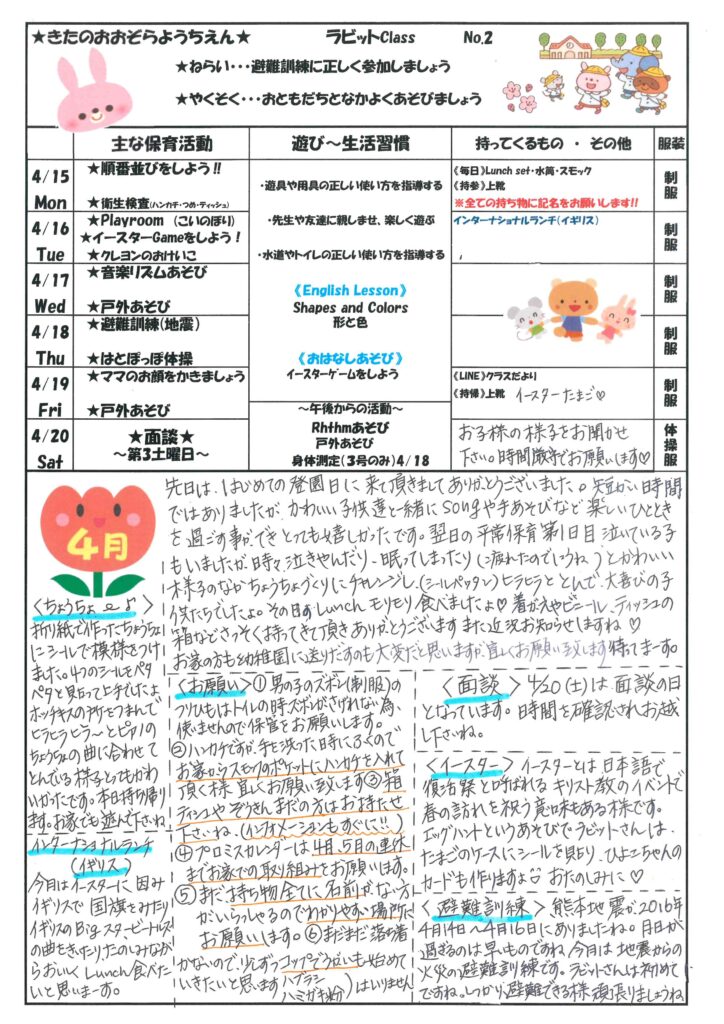 ★きたのおおぞらようちえん★ ラビットClass No.2
★ねらい・・・避難訓練に正しく参加しましょう
★やくそく・・・おともだちとなかよくあそびましょう
主な保育活動 遊び～生活習慣 持ってくるもの ・ その他 服装
4/15 Mon
★順番並びをしよう!!
★衛生検査(ハンカチ・つめ・ティッシュ)
・遊具や用具の正しい使い方を指導する
《毎日》Lunch set・水筒・スモック
《持参》上靴
※全ての持ち物に記名をお願いします!!
制服
4/16 Tue
★Playroom (こいのぼり)
★イースターGameをしよう！
★クレヨンのおけいこ
・先生や友達に親しませ、楽しく遊ぶ
・水道やトイレの正しい使い方を指導する
インターナショナルランチ(イギリス)
制服
4/17 Wed
★音楽リズムあそび
★戸外あそび
《English Lesson》
Shapes and Colors
形と色
制服
4/18 Thu
★避難訓練(地震)
★はとぽっぽ体操
《おはなしあそび》
イースターゲームをしよう
制服
4/19 Fri
★ママのお顔をかきましょう
★戸外あそび
《LINE》クラスだより
《持帰》上靴 イースターたまご♡
制服
4/20 Sat
★面談★
～第3土曜日～
～午後からの活動～
Rhthmあそび
戸外あそび
身体測定(3号のみ)4/18
お子様の様子をお聞かせ
下さい。時間厳守でお願いします♡
体操服
4月
先日は、はじめての登園日に来て頂きましてありがとうございました。短かい時間
ではありましたが、かわいい子供達と一緒にsongや手あそびなど楽しいひととき
を過ごす事ができとっても嬉しかったです。翌日の平常保育第1日目泣いている子
もいましたが、時々泣きやんだり、眠ってしまったり(疲れたのでしょうね)とかわいい
様子のなかちょうちょづくりにチャレンジし、(シールペッタン)ヒラヒラととんで、大喜びの子
供たちでしたよ。その日すLunchモリモリ食べましたよ♡着がえやビニール、ティッシュの
箱などさっそく持ってきて頂きありがとうございます また近況お知らせしますね♡
お家の方も幼稚園に送りだすのも大変だと思いますが、宜しくお願い致します 待ってまーす。
<ちょうちょ〜♪>
折り紙で作ったちょうちょ
にシールで模様をつけ
ました。4つのシールをペタ
ペタと貼って上手でしたよ
ホッチキスの所をつまんで
ヒラヒラヒラ〜とピアノの
ちょうちょの曲に合わせて
とんでいる様子とってもかわ
いかったです。本日持ち帰り
ます。お家でも遊んで下さいね
インターナショナルランチ
(イギリス)
今月はイースターに因み
イギリスで国旗をみたり
イギリスのBigスタービートルズ
の曲をきいたりたのしみなが
らおいしくLunch食べた
いと思いまーす。
<お願い>① 男の子のズボン(制服)の
つりひもはトイレの時ズボンがさげれない為、
使いませんので保管をお願いします。
②ハンカチですが、手を洗った時にふくので
お家からスモックのポケットにハンカチを入れて
頂く様宜しくお願い致します③箱
ティシュやぞうきんまだの方はお持たせ
下さいね、(インフォメーションもすぐに!!)
④プロミスカレンダーは4月、5月の連休
までお家での取り組みをお願いします。
⑤まだ、持ち物全てに名前がない方
がいらっしゃるのでわかりやすい場所に
お願いします。⑥まだまだ落ち着
かないので、少しずつコップでうがいも始めて
いきたいと思います(ハブラシ ハミガキ粉)はいりません
<面談> 4/20(土)は面談の日
となっています。時間を確認されお越
し下さいね。
<イースター>イースターとは日本語で
復活祭と呼ばれるキリスト教のイベントで
春の訪れを祝う意味もある様です。
エッグハントというあそびでラビットさんは、
たまごのケースにシールを貼り、ひよこちゃんの
カードも作りますよ おたのしみに♡
<避難訓練>熊本地震が2016年
4月14日〜4月16日にありましたね。月日が
過ぎるのは早いものですね 今月は地震からの
火災の避難訓練です。ラビットさんは初めて
ですね。しっかり避難できる様頑張りましょうね